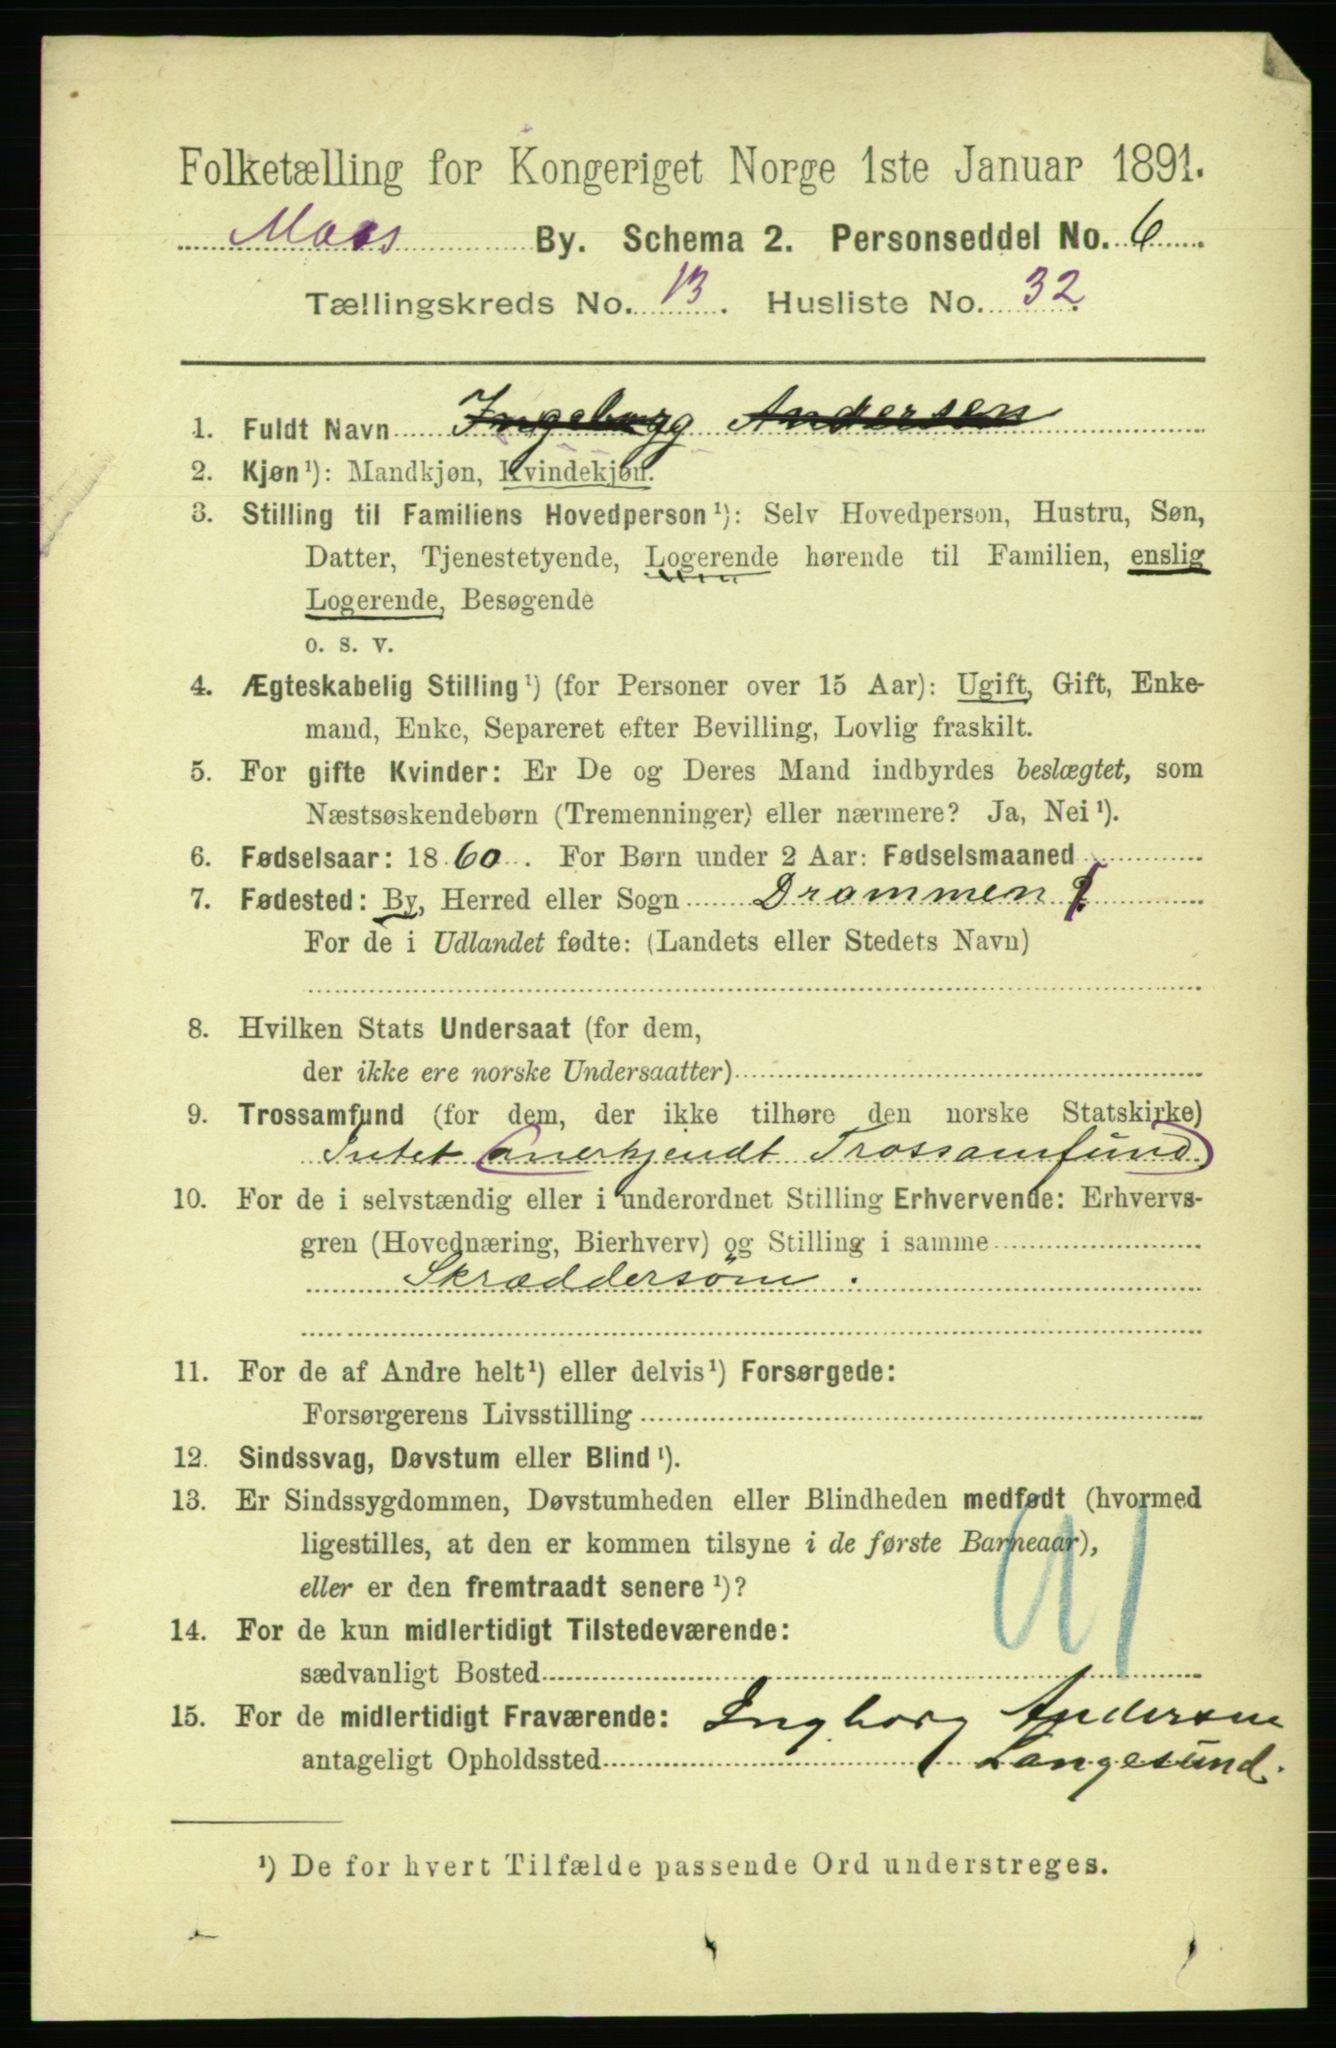 Folketælling for Kongeriget Norge 1ste Januar 1891.
Moss By. Schema 2. Personseddel No. 6
Tællingskreds No. 13. Husliste No. 32
1. Fuldt Navn Ingeborg Andersen
2. Kjøn¹): Mandkjøn, Kvindekjøn.
3. Stilling til Familiens Hovedperson¹): Selv Hovedperson, Hustru, Søn,
Datter, Tjenestetyende, Logerende hørende til Familien, enslig
Logerende, Besøgende
o. s. v.
4. Ægteskabelig Stilling¹) (for Personer over 15 Aar): Ugift, Gift, Enke-
mand, Enke, Separeret efter Bevilling, Lovlig fraskilt.
5. For gifte Kvinder: Er De og Deres Mand indbyrdes beslægtet, som
Næstsøskendebørn (Tremenninger) eller nærmere? Ja, Nei¹).
6. Fødselsaar: 1860. For Børn under 2 Aar: Fødselsmaaned
7. Fødested: By, Herred eller Sogn Drammen
For de i Udlandet fødte: (Landets eller Stedets Navn)
8. Hvilken Stats Undersaat (for dem,
der ikke ere norske Undersaatter)
9. Trossamfund (for dem, der ikke tilhøre den norske Statskirke)
Intet anerkjendt Trossamfund
10. For de i selvstændig eller i underordnet Stilling Erhvervende: Erhvervs-
gren (Hovednæring, Bierhverv) og Stilling i samme
Skræddersøm.
11. For de af Andre helt¹) eller delvis¹) Forsørgede:
Forsørgerens Livsstilling
12. Sindssvag, Døvstum eller Blind¹).
13. Er Sindssygdommen, Døvstumheden eller Blindheden medfødt (hvormed
ligestilles, at den er kommen tilsyne i de første Barneaar),
eller er den fremtraadt senere¹)?
14. For de kun midlertidigt Tilstedeværende:
sædvanligt Bosted
15. For de midlertidigt Fraværende: Ingborg Andersen
antageligt Opholdssted Langesund.
¹) De for hvert Tilfælde passende Ord understreges.